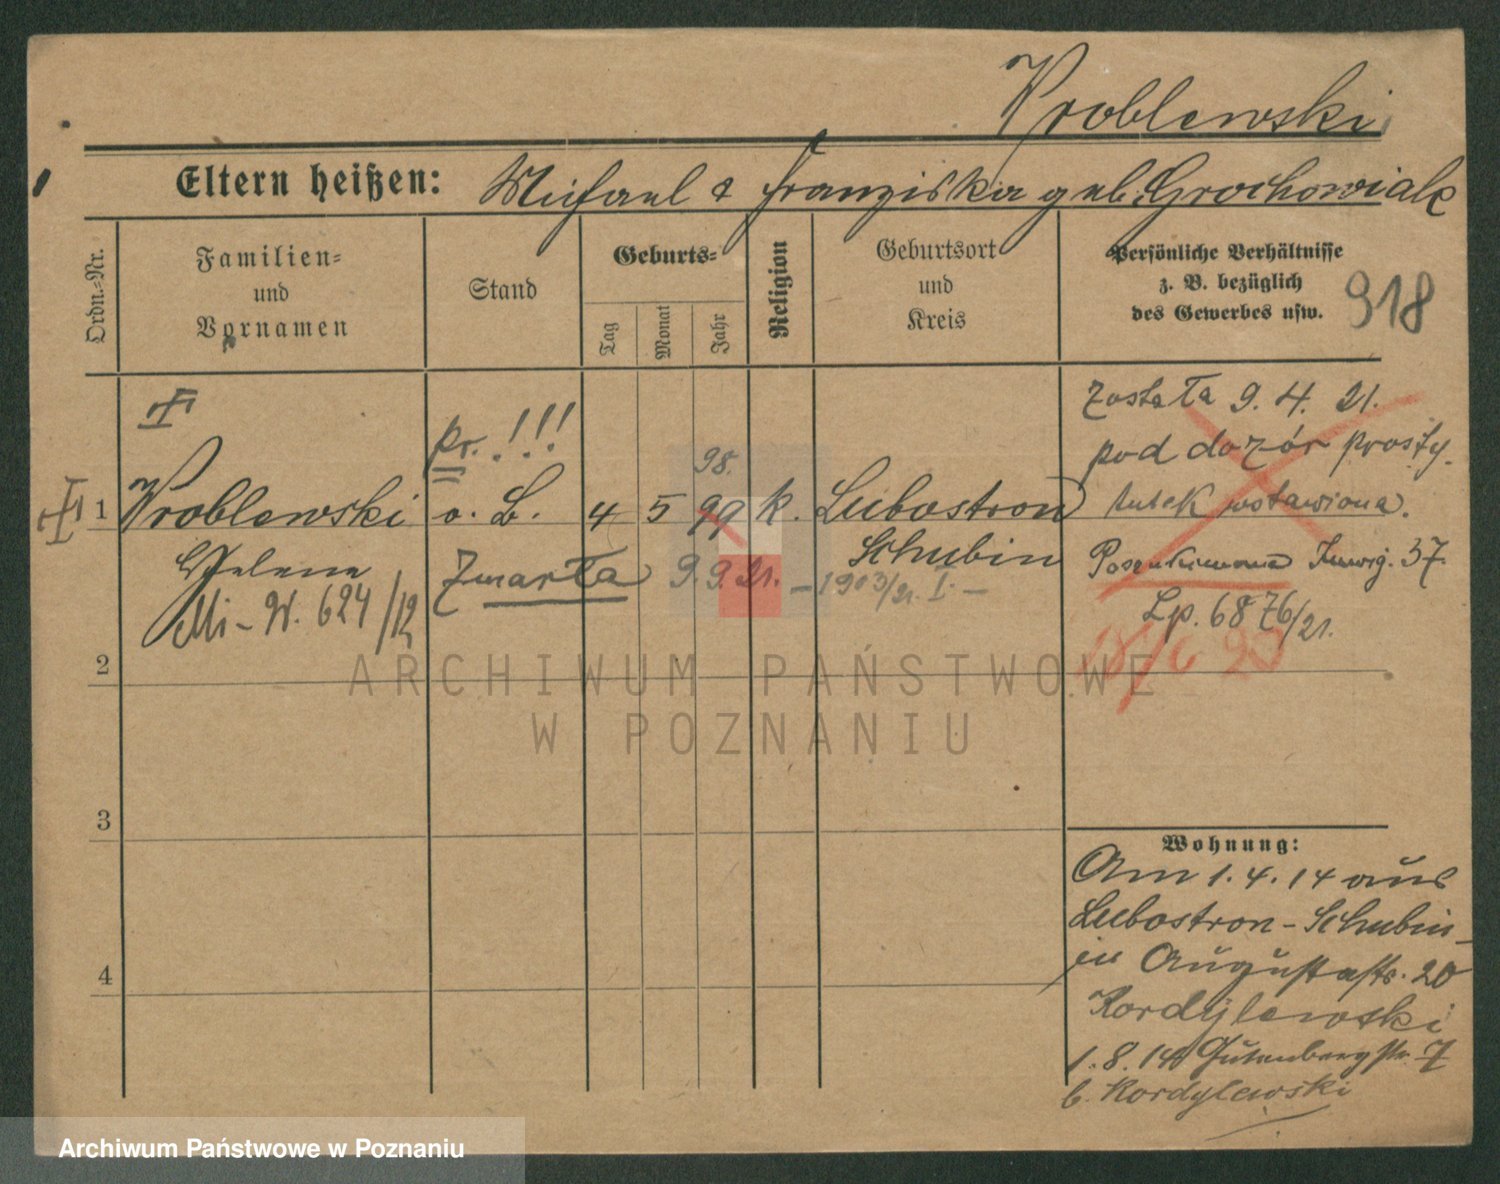 Wroblewski
Eltern heißen: Michael & Franziska geb. Grochowialk
Ordn.-Nr.
Familien-
und
Vornamen
Stand
Geburts-
Tag
Monat
Jahr
Religion
Geburtsort
und
Kreis
Persönliche Verhältnisse
z. B. bezüglich
des Gewerbes usw.
918
pr. !!!
98.
1 Wroblewski o. B. 4 5 99 k. Lubostron
Schubin
Helene
Zmarła 9.9.21. – 1903/21. I. –
624/12
Została 9. 4. 21.
pod dozór prosty.
tutek wstawiona.
37.
Lp. 6876/21.
2
3
4
Wohnung:
Am 1.4.14 aus
Lubostron-Schubin
in Augustastr. 20
Kordylewski
1.8.14 Gutenbergstr. 7
b. Kordylewski
ARCHIWUM PAŃSTWOWE
W POZNANIU
Archiwum Państwowe w Poznaniu